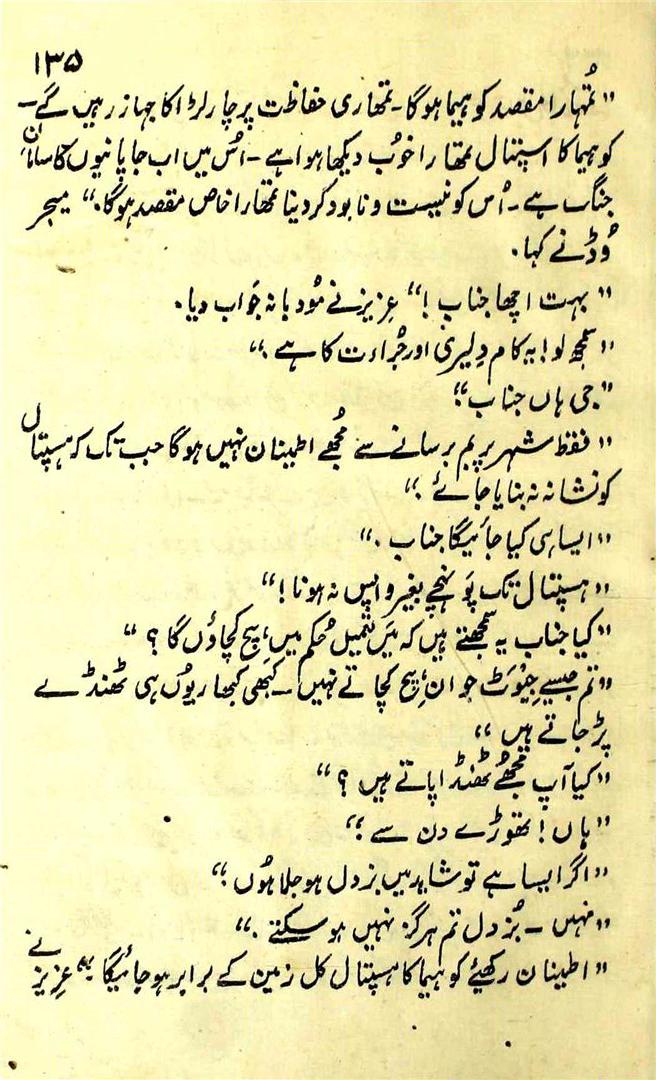 ۱۳۵
"تُمہارا مقصد کوہیما ہوگا۔ تمھاری حفاظت پر چار لڑاکا جہاز رہیں گے۔
کوہیما کا اسپتال تمھارا خوُب دیکھا ہوا ہے۔ اُس میں اب جاپانیوں کا سامان
جنگ ہے۔ اُس کو نیست و نابود کر دینا تمھارا خاص مقصد ہوگا۔" میجر
وُڈ نے کہا۔
"بہت اچھا جناب!" عزیز نے مُودبانہ جَواب دیا۔
"سمجھ لو! یہ کام دِلیری اور جُراءت کا ہے۔"
"جی ہاں جناب"
"فقط شہر پر بم برسانے سے مُجھے اطمینان نہیں ہوگا جب تک کہ ہسپتال
کو نشانہ نہ بنایا جائے۔"
"ایسا ہی کیا جائیگا جناب۔"
"ہسپتال تک پَونہچے بغیر واپس نہ ہونا!"
"کیا جناب یہ سمجھتے ہیں کہ میَں تعمیل حُکم میں ہیچ کچاؤں گا؟"
"تم جیسے جِیوَٹ جوان ہیچ کچاتے نہیں۔ کبھی کبھار یوُں ہی ٹھنڈے
پڑ جاتے ہیں"
"کیا آپ مُجھے ٹھنڈا پاتے ہیں؟"
"ہاں! تھوڑے دن سے"
"اگر ایسا ہے تو شاید میں بزدل ہو چلا ہُوں"
"نہیں۔ بُزدل تم ہرگز نہیں ہو سکتے۔"
"اطمینان رکھیئے کوہیما کا ہسپتال کل زمین کے برابر ہو جائیگا" عزیز نے